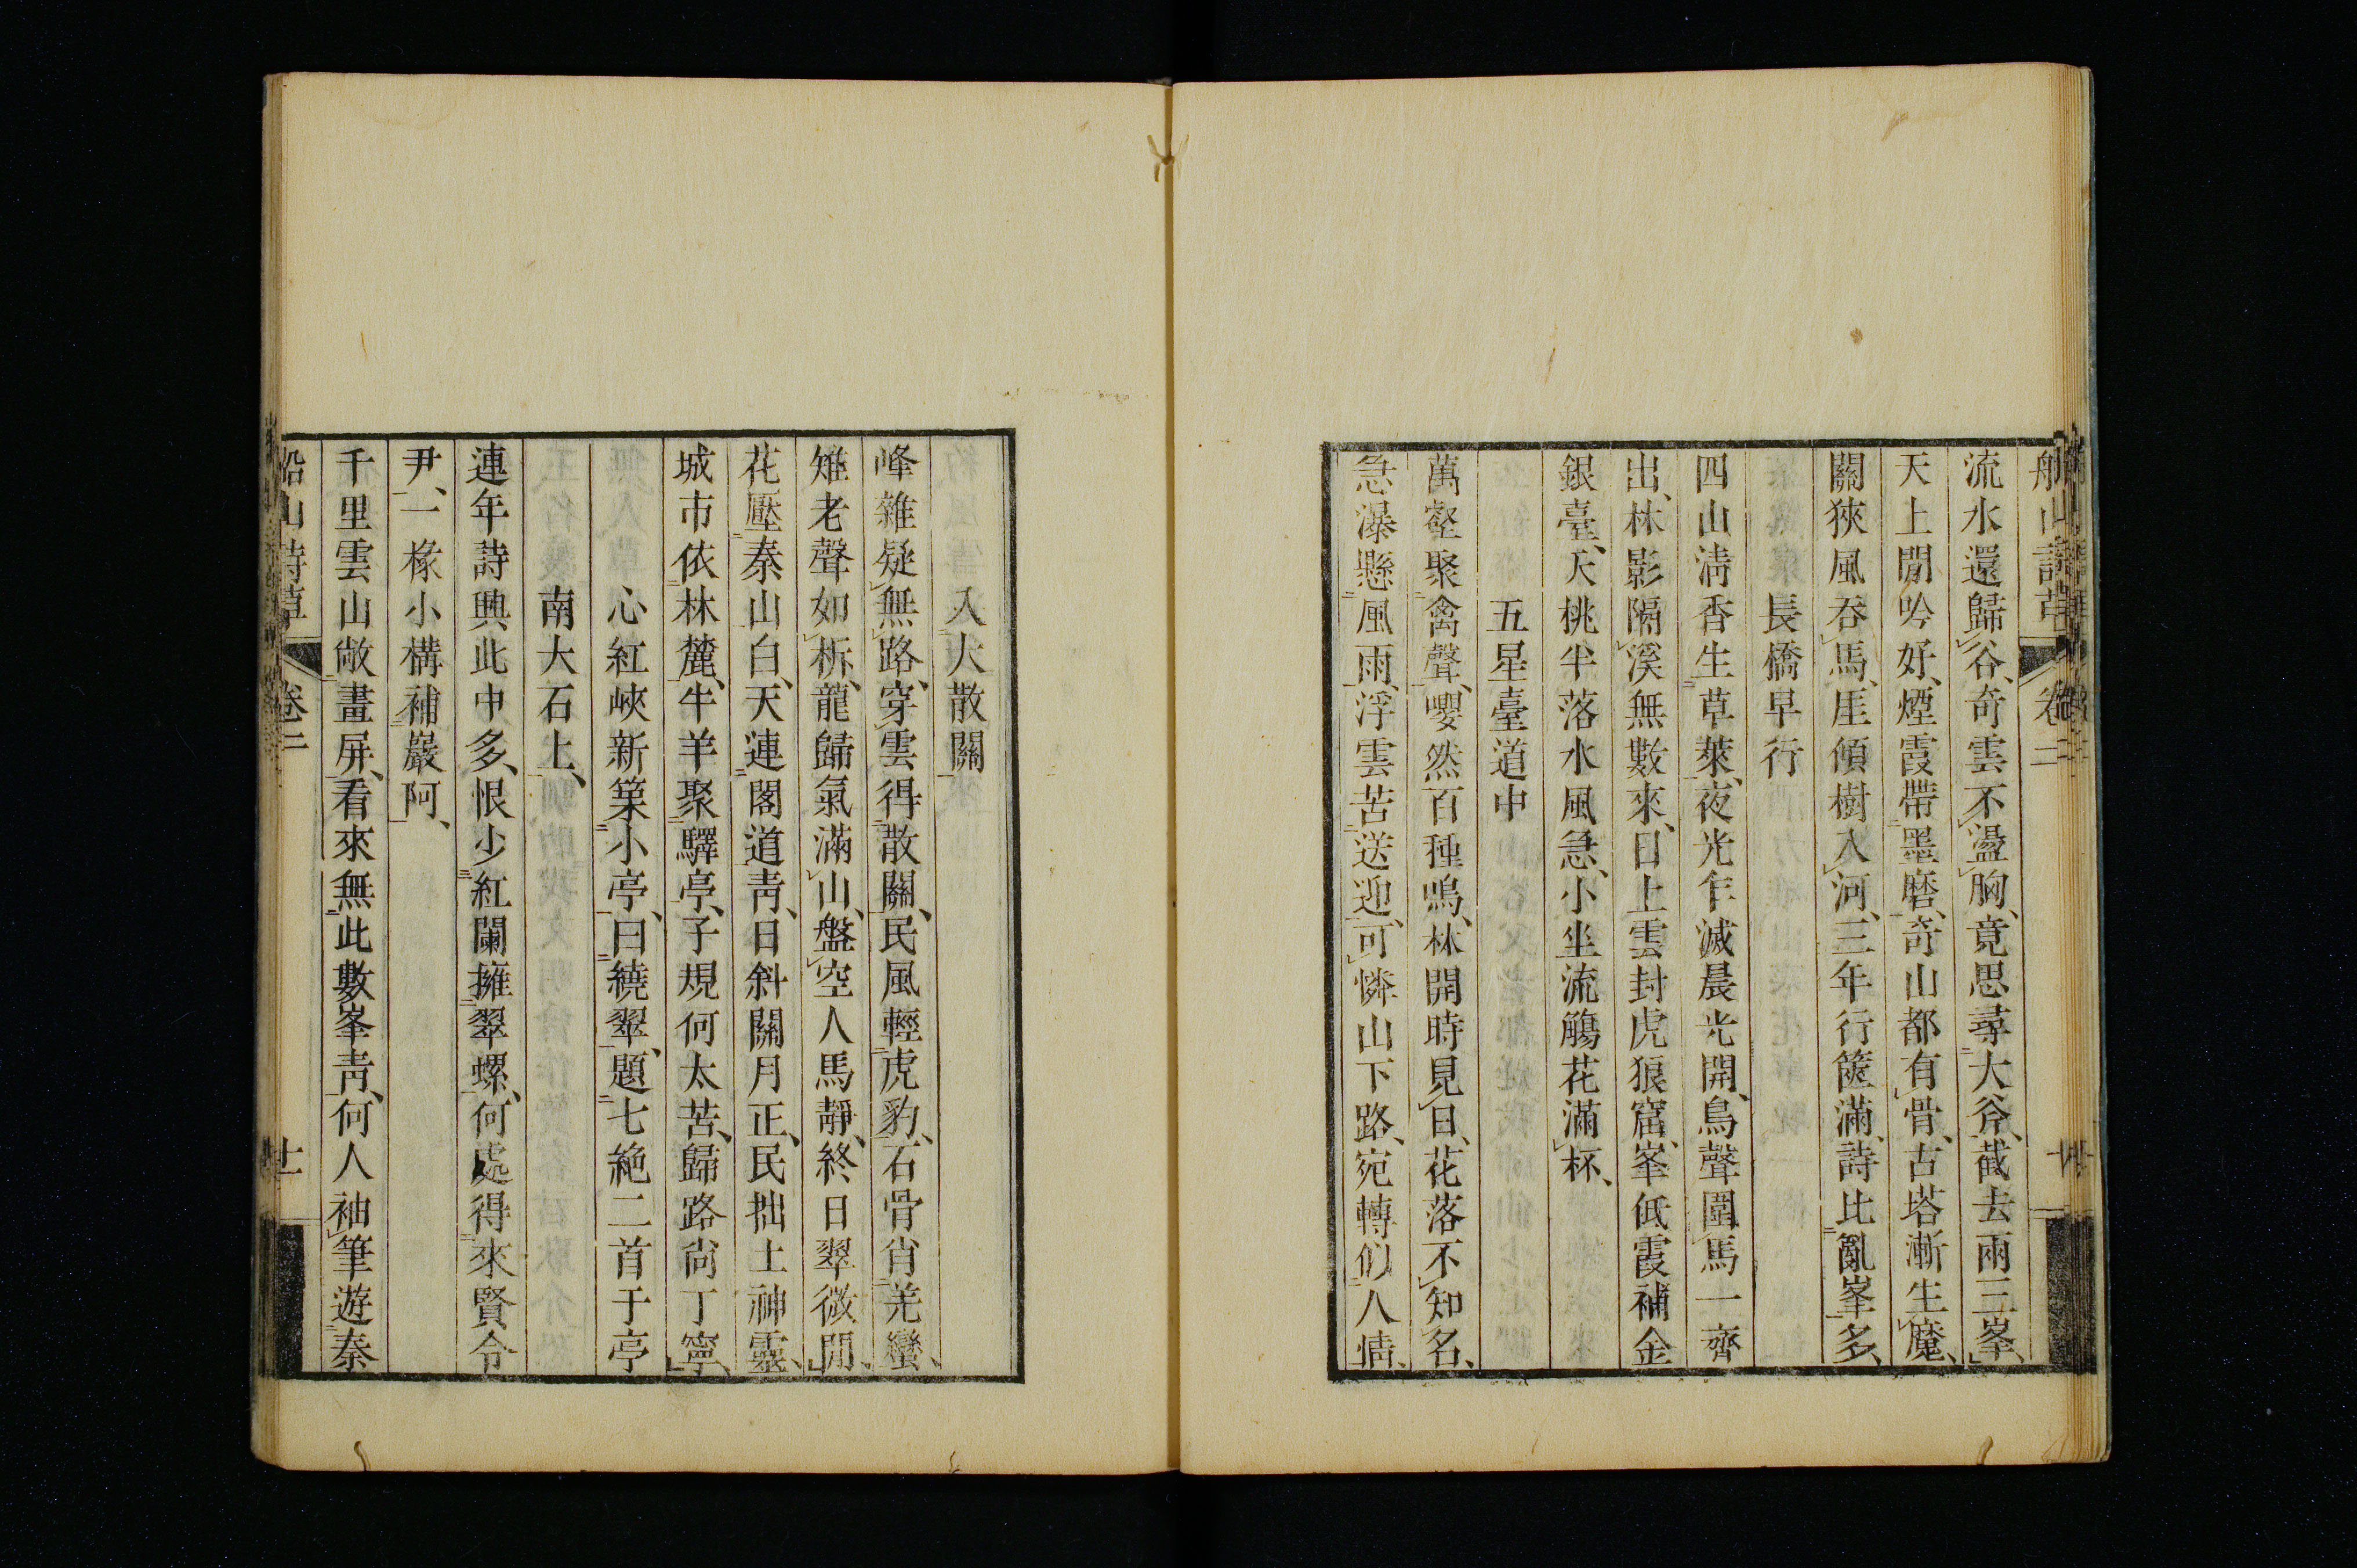 船山詩草 卷二
流水還歸谷、奇雲不盪胸、竟思尋大斧、截去兩三峯、
天上閒吟好、煙霞帶墨磨、奇山都有骨、古塔漸生魔、
關狹風吞馬、厓傾樹入河、三年行篋滿、詩比亂峯多、
長橋早行
四山淸香生草萊、夜光乍滅晨光開、鳥聲圍馬一齊
出、林影隔溪無數來、日上雲封虎狼窟、峯低霞補金
銀臺、夭桃半落水風急、小坐流觴花滿杯、
五星臺道中
萬壑聚禽聲、嚶然百種鳴、林開時見日、花落不知名、
急瀑懸風雨、浮雲苦送迎、可憐山下路、宛轉似人情、
入大散關
峰雜疑無路、穿雲得散關、民風輕虎豹、石骨肖羌蠻、
雉老聲如柝、龍歸氣滿山、盤空人馬靜、終日翠微閒、
花壓秦山白、天連閣道靑、日斜關月正、民拙土神靈、
城市依林麓、牛羊聚驛亭、子規何太苦、歸路尚丁寧、
心紅峽新築小亭、曰繞翠、題七絶二首于亭
南大石上、
連年詩興此中多、恨少紅闌擁翠螺、何處得來賢令
尹、一椽小構補巖阿、
千里雲山敞畫屏、看來無此數峯靑、何人袖筆遊秦
船山詩草 卷二 十一